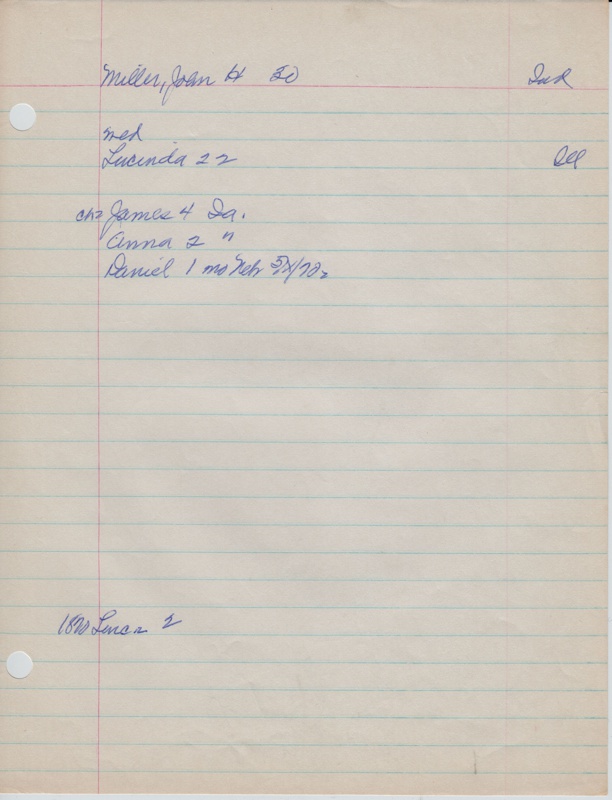 Miller, John H 30 Ind
med
Lucinda 22 Ill
ch= James 4 Ia.
Anna 2 "
Daniel 1 mo Neb
1870 2